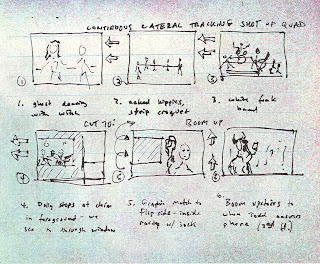 CONTINUOUS LATERAL TRACKING SHOT OF QUAD
1
2
3
1. ghost dancing
with witch
2. naked hippies,
strip croquet
3. white funk
band
CUT TO:
BOOM UP
4
5
6
4. Dolly stops at dorm
in foreground - we
see in through window
5. Graphic match to
flip side - inside
party w/
6. Boom upstairs to
when Todd answers
phone (2nd fl.)